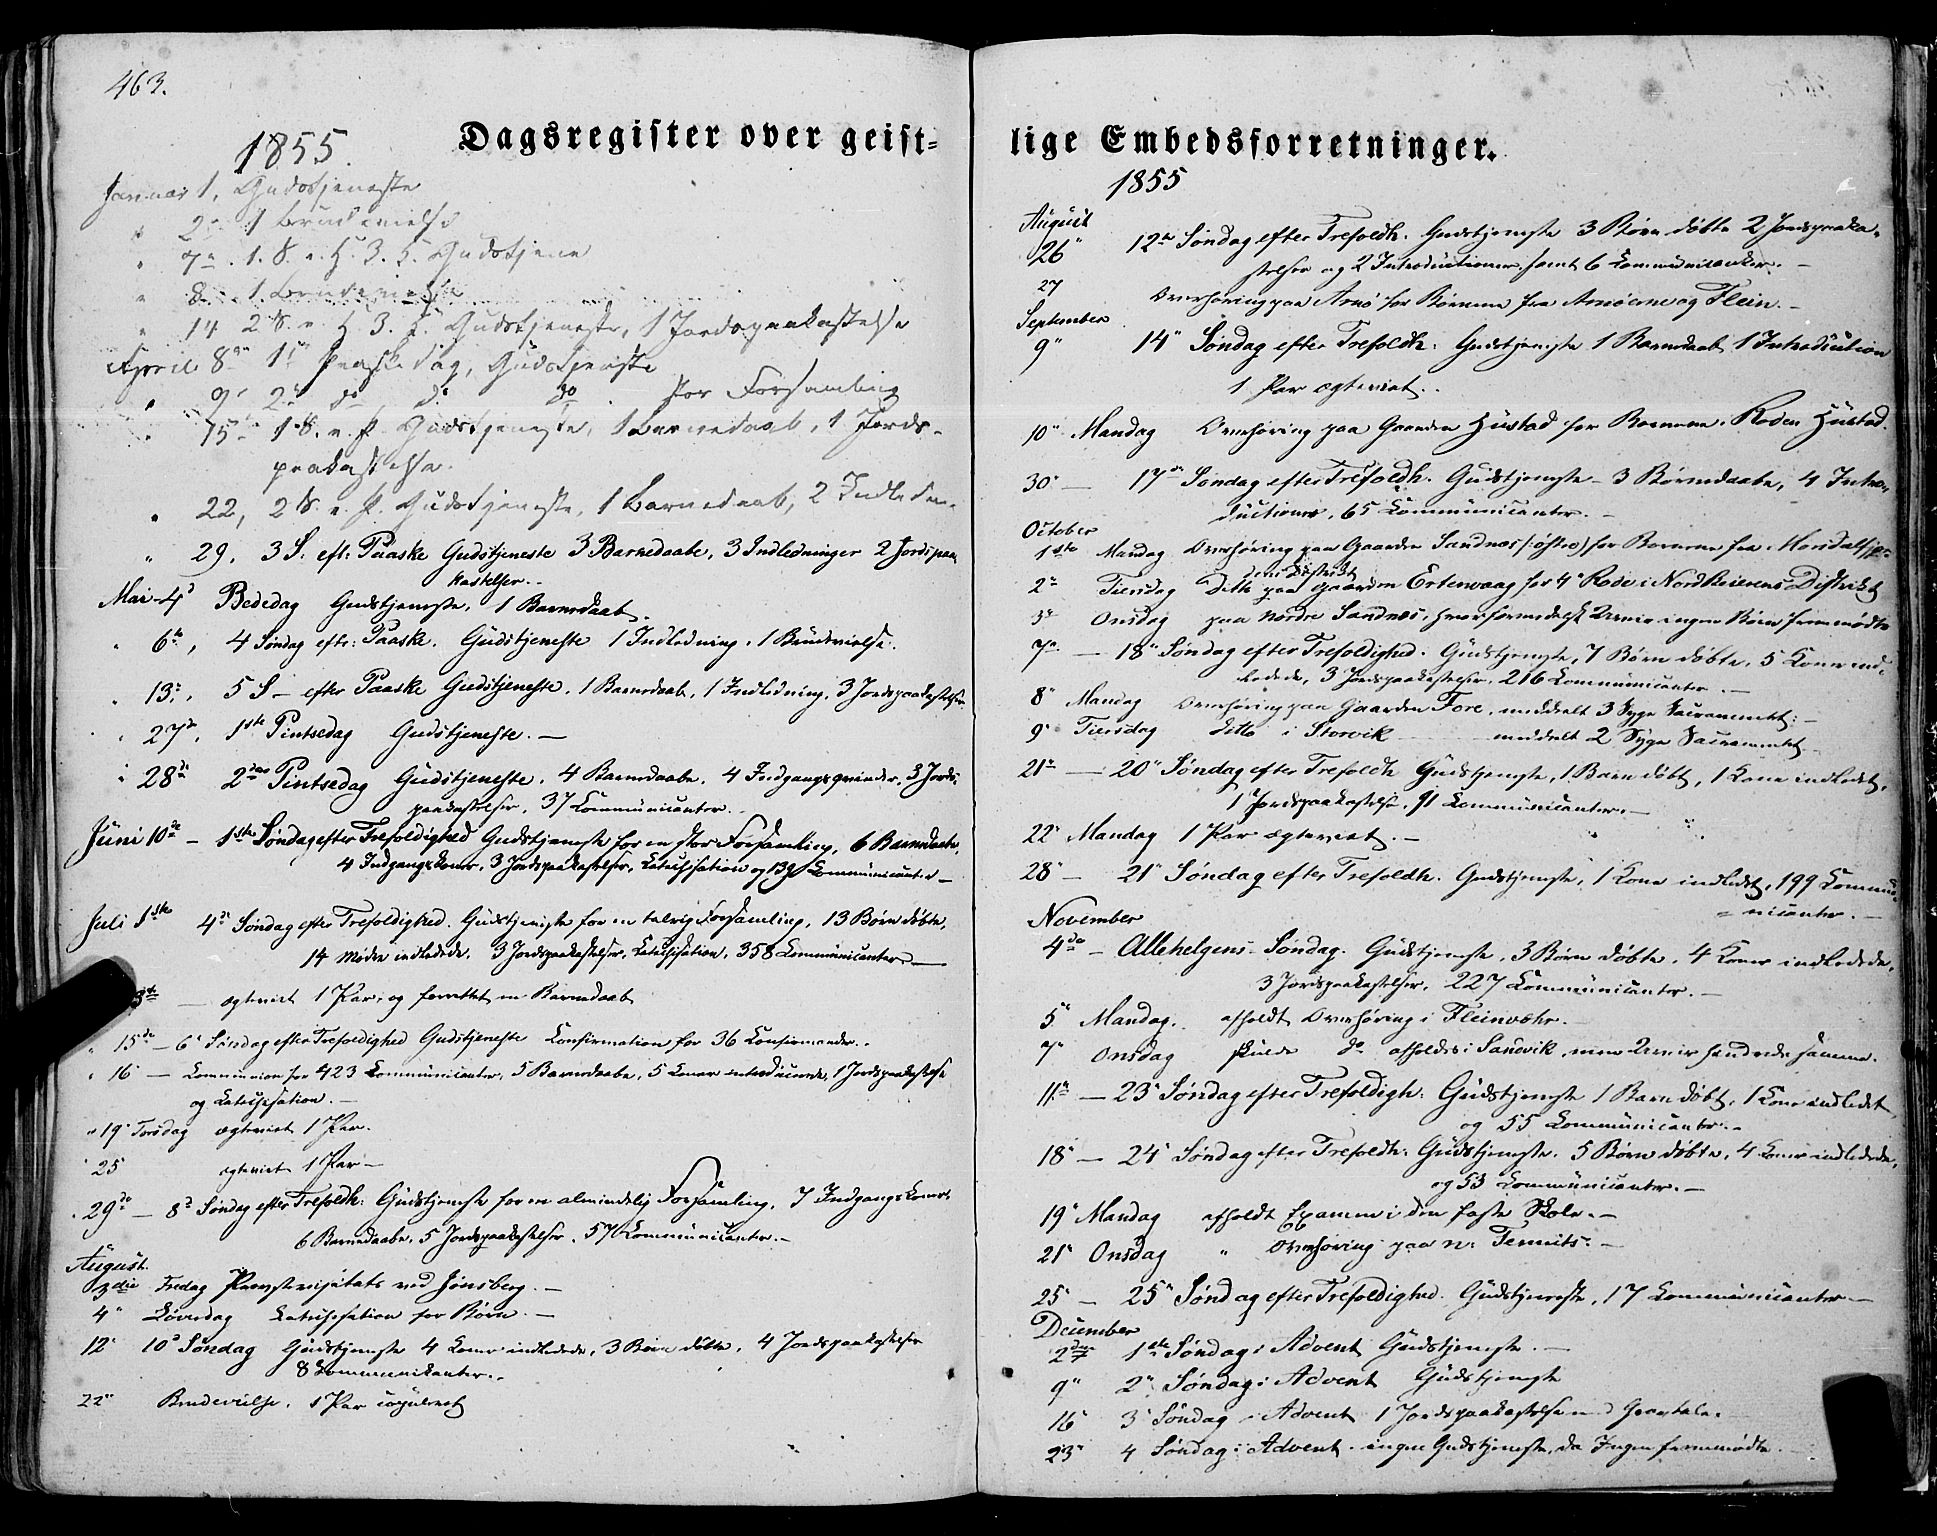 463.
Dagsregister over geist-
1855.
Januar 1, Gudstjeneste
" 2den 1 Brudevielse
" 7de. 1. S. e. H. 3. K. Gudstjene
" 8de 1 Brudevielse
" 14 2 S. e. H 3. K. Gudstjeneste, 1 Jordspaakastelse
April 8de 1ste Paaskedag, Gudstjeneste
" 9de 2den do do do. Stor Forsamling
" 15de 1 S. e. P. Gudstjeneste, 1 Barnedaab, 1 Jords-
paakastelse.
" 22, 2 S. e. P. Gudstjeneste, 1 Barnedaab, 2 Indledn.
" 29, 3 S. eft: Paaske Gudstjeneste 3 Barnedaabe, 3 Indledninger 2 Jordspaa
kastelser.
Mai 4de Bededag Gudstjeneste, 1 Barnedaab.
" 6te, 4 Søndag eftr: Paaske. Gudstjeneste 1 Indledning. 1 Brudevielse.
" 13de, 5 S – efter Paaske Gudstjeneste. 1 Barnedaab, 1 Indledning, 3 Jordspaakastelser
" 27de, 1ste Pintsedag Gudstjeneste. –
" 28de 2den Pintsedag Gudstjeneste. 4 Barnedaabe. 4 Indgangsqvinder, 3 Jords-
paakastelser, 37 Communicanter.
Juni 10de – 1ste Søndag efter Trefoldighed Gudstjeneste for en stor Forsamling, 6 Barnedaabe,
4 Indgangskoner, 3 Jordspaakastelser, Catechisation og 139 Communicanter –
Juli 1ste 4de Søndag efter Trefoldighed. Gudstjeneste for en talrig Forsamling, 13 Børn døbte,
14 Mødre indledede, 3 Jordspaakastelser, Catechisation, 358 Communicanter. –
3de – ægteviet 1 Par, og forrettet en Barnedaab
" 15de – 6te Søndag efter Trefoldighed Gudstjeneste Confirmation for 36 Confirmander.
" 16 – Communion for 423 Communicanter, 5 Barnedaabe, 5 Koner introducerede, 1 Jordspaakastelse
og Catechisation. –
" 19 Torsdag ægteviet 1 Par.
" 25 ægteviet 1 Par –
" 29de – 8de Søndag efter Trefoldh: Gudstjeneste for en almindelig Forsamling, 7 Indgangskoner,
6 Barnedaabe, 5 Jordspaakastelser, 57 Communicanter. –
August.
3die Fredag Præsterejstats ved Jønsberg. –
4de Løverdag Catechisation for Børn. –
12te 10de Søndag Gudstjeneste 4 Koner indledede, 3 Børn døbte. 4 Jordspaakastelser
8 Communikanter.
22de Brudevielse. 1 Par copuleret
lige Embedsforretninger.
1855
August
26de 12te Søndag efter Trefoldh. Gudstjeneste 3 Børn døbte 2 Jordspaaka-
stelser og 2 Introductioner, samt 6 Communicanter. –
27 Overhøring paa Arnø for Børnene fra Arnøerne og Flein. –
September
9de 14de Søndag efter Trefoldh: Gudstjeneste 1 Barnedaab 1 Introduction
1 Par ægteviet.
10de Mandag Overhøring paa Gaarden Hustad for Børnene. Roden Hustad.
30de – 17de Søndag efter Trefoldh. Gudstjeneste – 3 Børnedaabe, 4 Intro-
ductioner, 65 Communicanter. –
October
1ste Mandag Overhøring paa Gaarden Sandnæs (: østre) for Børnene fra Morsdalfjor-
den District
2den Tiersdag Ditto paa Gaarden Ertenvaag for 4de Rode i Nord Beierens District
3de Onsdag paa Nordre Sandnæs, hvor formedelst Uveir ingen Børn fremmødte
7de – 18de Søndag efter Trefoldighed. Gudstjeneste, 7 Børn døbte, 5 Koner ind-
ledede, 3 Jordspaakastelser, 216 Communicanter. –
8de Mandag Overhøring paa Gaarden Fore, meddelt 3 Syge Sacramentet: –
9de Tiersdag ditto i Storvik meddelt 2 Syge Sacramentet
21de – 20de Søndag efter Trefoldh Gudstjeneste, 1 Barn døbt, 1 Kone indledet,
1 Jordspaakastelse, 91 Communicanter. –
22de Mandag 1 Par ægteviet. –
28de – 21de Søndag efter Trefoldh. Gudstjeneste, 1 Kone indledet, 199 Commu-
nicanter. –
November
4de – Allehelgens-Søndag. Gudstjeneste, 3 Børn døbte, 4 Koner indledede,
3 Jordspaakastelser, 227 Communicanter. –
5te Mandag. afholdt Overhøring i Fleinvæhr. –
7de Onsdag skulde do afholdes i Sandvik, men Uveir hindrede samme.
11te – 23de Søndag efter Trefoldigh: Gudstjeneste 1 Barn døbt, 1 Kone indledet
og 55 Communicanter. –
18de – 24de Søndag efter Trefoldh: Gudstjeneste. 5 Børn døbte, 4 Koner indledede,
og 53 Communicanter. –
19de Mandag afholdt Examen i den faste Skole. –
21de Onsdag " Overhøring paa n: Temits. –
25de – 25de Søndag efter Trefoldighed. Gudstjeneste, 17 Communicanter –
December
2den 1ste Søndag i Advent Gudstjeneste. –
9de 2den Søndag i Advent Gudstjeneste
16de 3de Søndag i Advent 1 Jordspaakastelse med Gravtale. –
23de 4 Søndag i Advent. ingen Gudstjeneste, da Ingen fremmødte. –